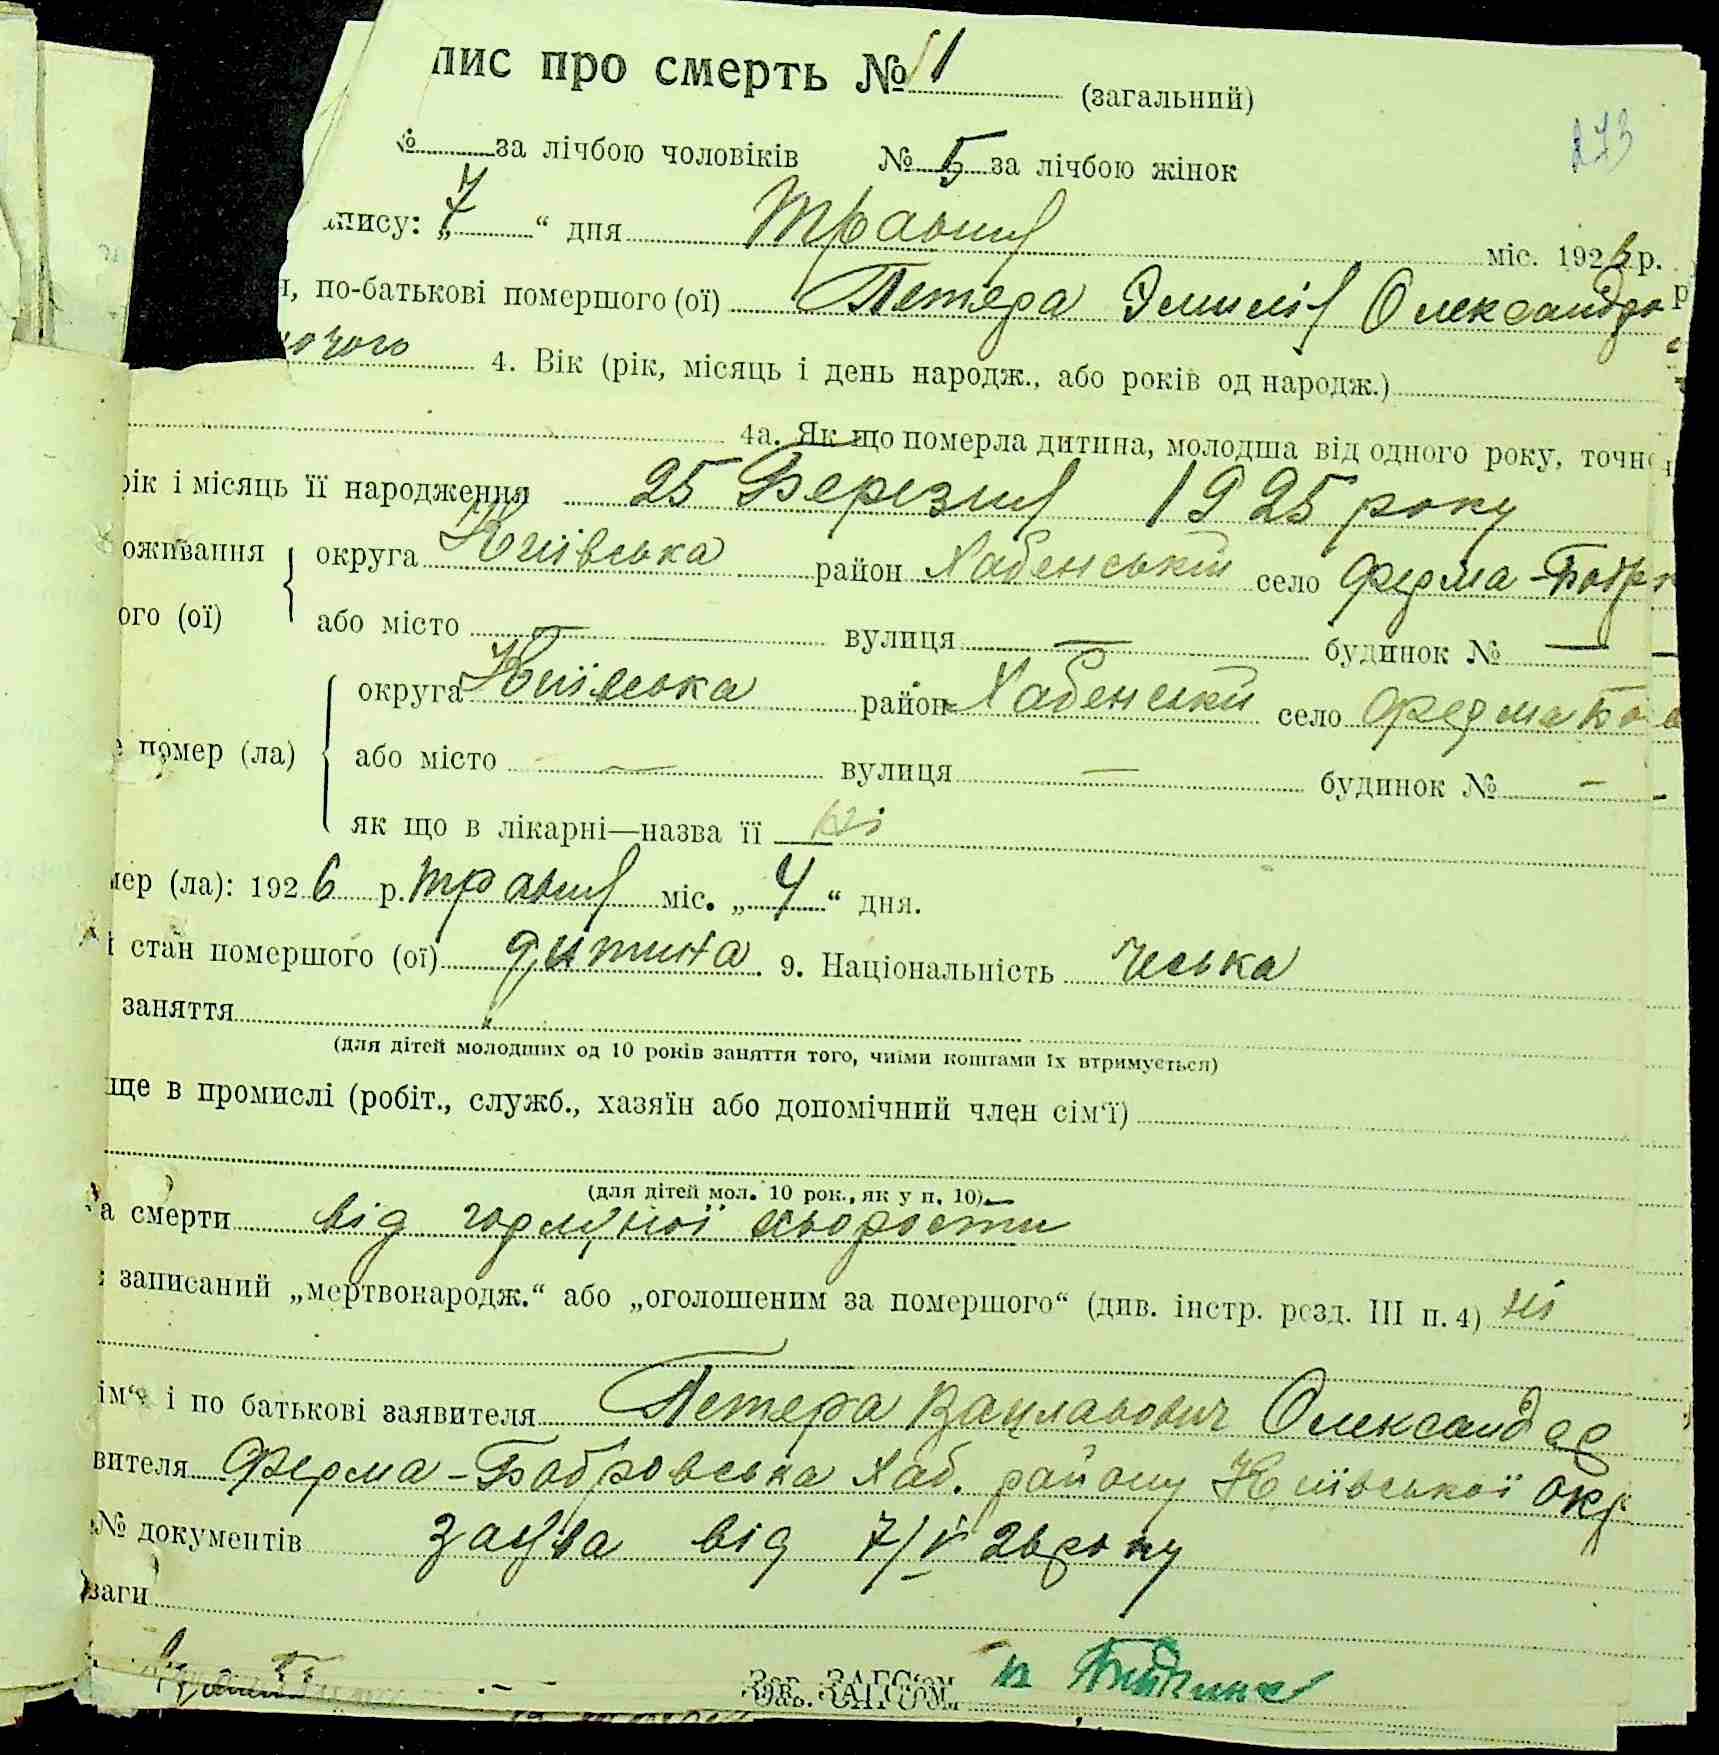 пис про смерть № 11 (загальний)
273
№ за лічбою чоловіків № 5 за лічбою жінок
пису: „7“ дня Травня міс. 1926 р.
я, по-батькові помершого (ої) Петера Эмилія Олександро
ночого 4. Вік (рік, місяць і день народж., або років од народж.)
4а. Як що померла дитина, молодша від одного року, точно
рік і місяць її народження 25 Березня 1925 року
оживання округа Київська район Хабенський село Ферма-Бобр
ого (ої) або місто — вулиця — будинок № —
округа Київська район Хабенський село Ферма Бо
е помер (ла) або місто — вулиця — будинок № —
як що в лікарні—назва її ні
мер (ла): 1926 р. травня міс. „4“ дня.
і стан помершого (ої) дитина. 9. Національність чеська
заняття
(для дітей молодших од 10 років заняття того, чиїми коштами їх втримується)
ще в промислі (робіт., служб., хазяїн або допомічний член сім'ї)
(для дітей мол. 10 рок., як у п. 10)
а смерти від горляної хворости
записаний „мертвонародж.“ або „оголошеним за помершого“ (див. інстр. розд. III п. 4) ні
ім'я і по батькові заявителя Петера Вацлавович Олександер
вителя Ферма-Бобровська Хаб. району Київської окр
№ документів заява від 7/V 26 року
ваги
Зав. ЗАГС'ом